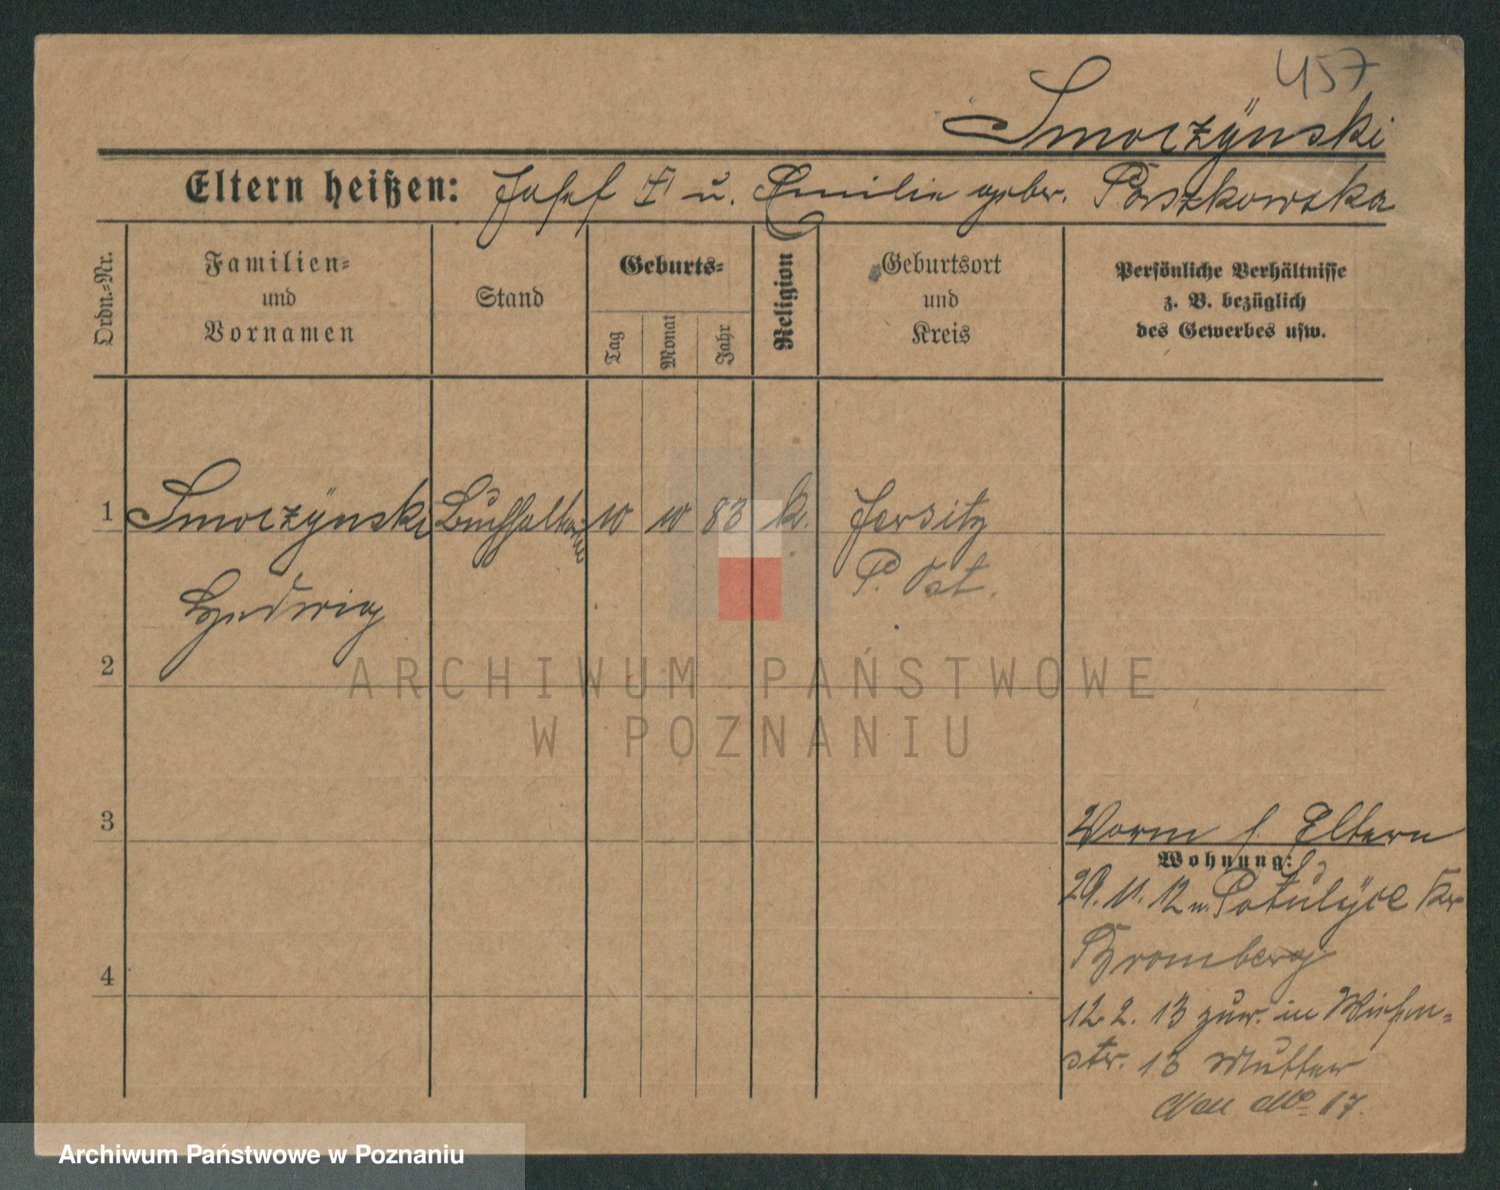 457
Smoczÿnski
Eltern heißen: Josef I u. Emilie geber. Paszkowska
Ordn.-Nr.
Familien-
und
Vornamen
Stand
Geburts-
Tag
Monat
Jahr
Religion
Geburtsort
und
Kreis
Persönliche Verhältnisse
z. B. bezüglich
des Gewerbes usw.
1 Smoczÿnski Buchhalterin 10 10 83 k. Jersitz
Hedwig P. Ost.
2
3
4
Vorm f. Eltern
Wohnung:
29. 11. 12 n. Potulÿce Kr
Bromberg
12. 2. 13 zur. in Wiesen-
str. 13 Mutter
17.
ARCHIWUM PAŃSTWOWE
W POZNANIU
Archiwum Państwowe w Poznaniu